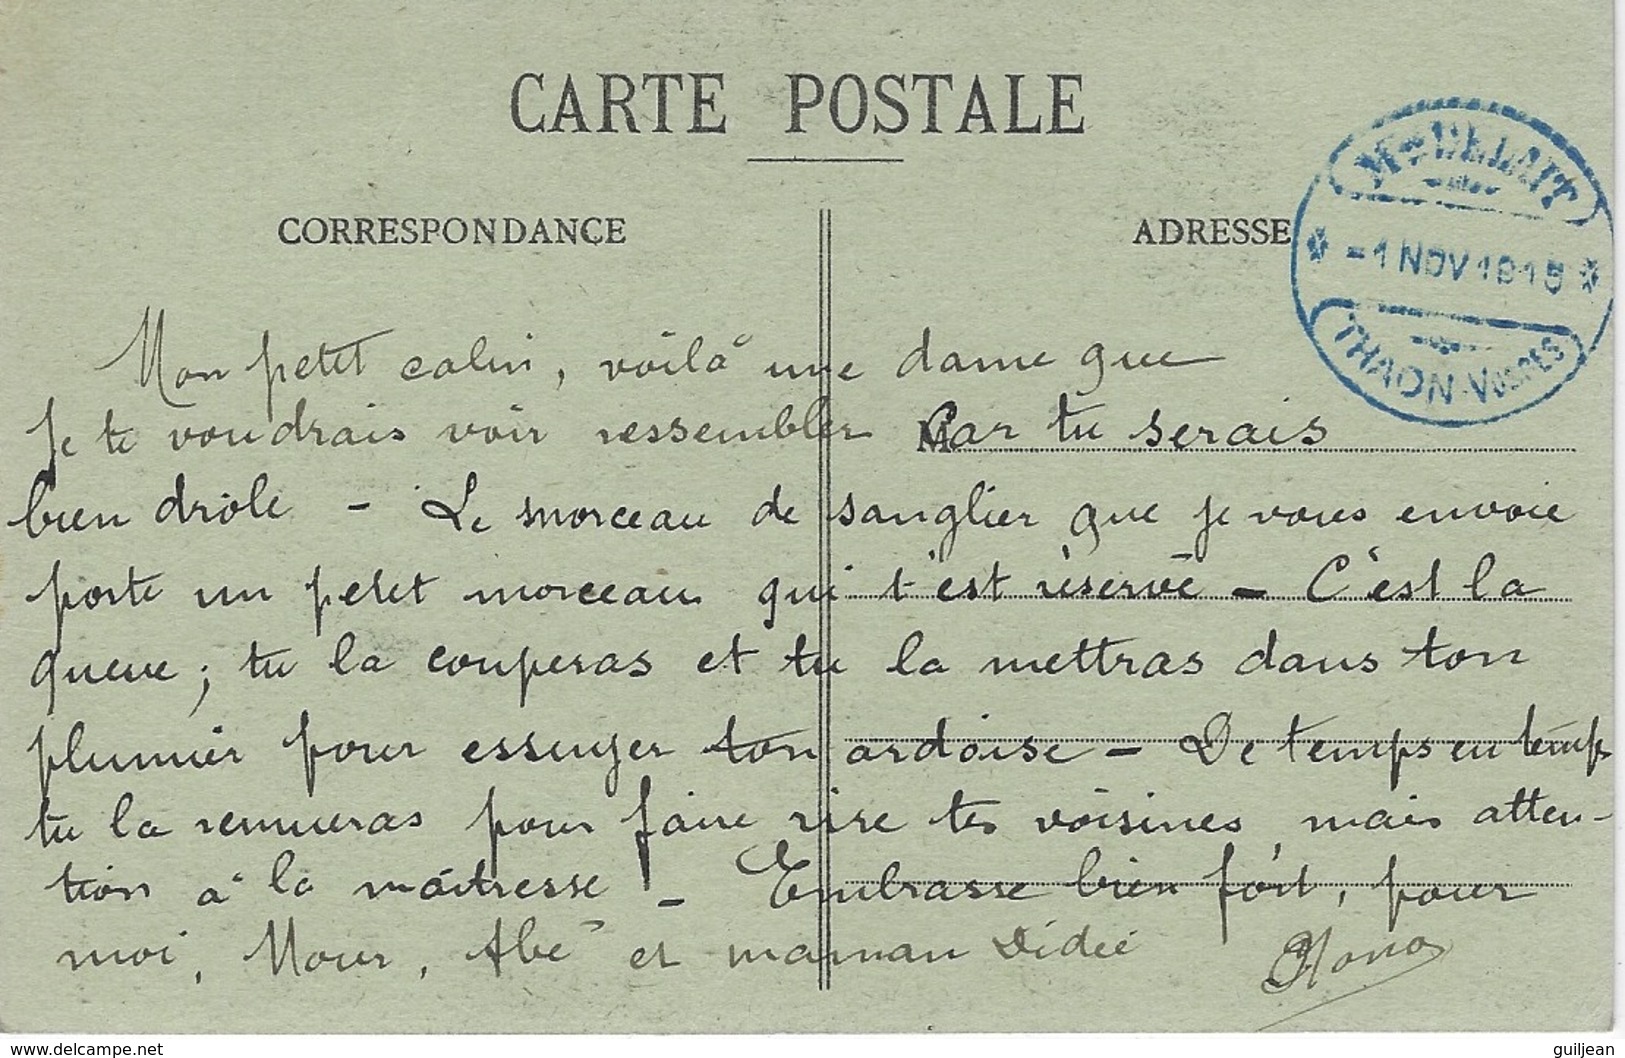 CARTE POSTALE
CORRESPONDANCE
ADRESSE
DELAIT
- 1 NOV 1915
THAON-VOSGES
Mon petit calin, voilà une dame que
Je te voudrais voir ressembler Car tu serais
bien drôle - Le morceau de sanglier que je vous envoie
porte un petit morceau qui t'est réservé - C'est la
queue; tu la couperas et tu la mettras dans ton
plumier pour essuyer ton ardoise - De temps en temps
tu la remueras pour faire rire tes voisines mais atten-
tion à la maîtresse - Embrasse bien fort, pour
moi, Nour, Abé et maman Didie
www.delcampe.net
guiljean